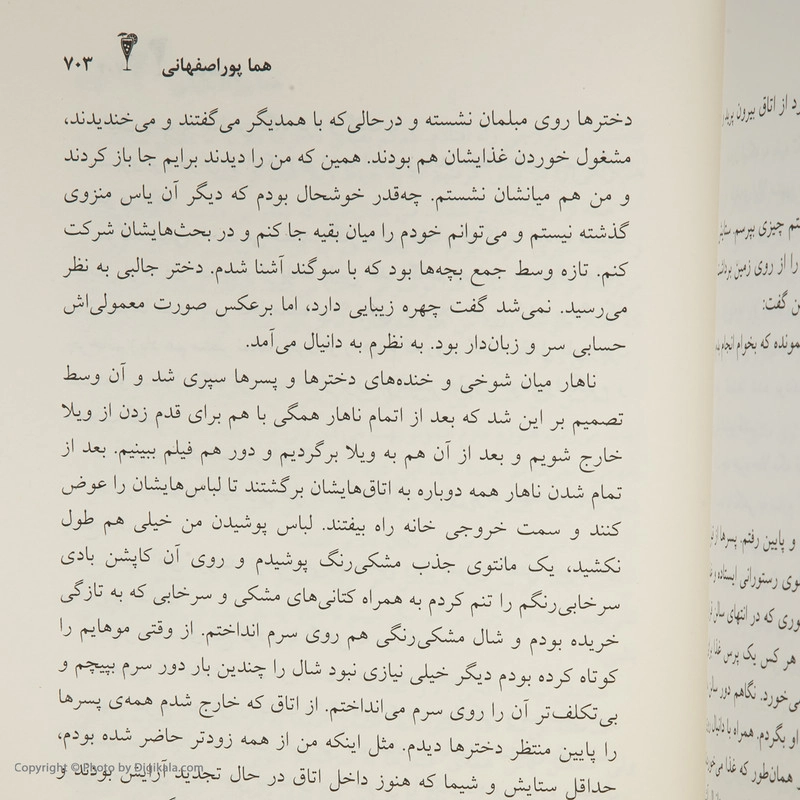 هما پوراصفهانی ۷۰۳
دخترها روی مبلمان نشسته و درحالی‌که با همدیگر می‌گفتند و می‌خندیدند،
مشغول خوردن غذایشان هم بودند. همین که من را دیدند برایم جا باز کردند
و من هم میانشان نشستم. چه‌قدر خوشحال بودم که دیگر آن یاس منزوی
گذشته نیستم و می‌توانم خودم را میان بقیه جا کنم و در بحث‌هایشان شرکت
کنم. تازه وسط جمع بچه‌ها بود که با سوگند آشنا شدم. دختر جالبی به نظر
می‌رسید. نمی‌شد گفت چهره زیبایی دارد، اما برعکس صورت معمولی‌اش
حسابی سر و زبان‌دار بود. به نظرم به دانیال می‌آمد.
ناهار میان شوخی و خنده‌های دخترها و پسرها سپری شد و آن وسط
تصمیم بر این شد که بعد از اتمام ناهار همگی با هم برای قدم زدن از ویلا
خارج شویم و بعد از آن هم به ویلا برگردیم و دور هم فیلم ببینیم. بعد از
تمام شدن ناهار همه دوباره به اتاق‌هایشان برگشتند تا لباس‌هایشان را عوض
کنند و سمت خروجی خانه راه بیفتند. لباس پوشیدن من خیلی هم طول
نکشید، یک مانتوی جذب مشکی‌رنگ پوشیدم و روی آن کاپشن بادی
سرخابی‌رنگم را تنم کردم به همراه کتانی‌های مشکی و سرخابی که به تازگی
خریده بودم و شال مشکی‌رنگی هم روی سرم انداختم. از وقتی موهایم را
کوتاه کرده بودم دیگر خیلی نیازی نبود شال را چندین بار دور سرم بپیچم و
بی‌تکلف‌تر آن را روی سرم می‌انداختم. از اتاق که خارج شدم همه‌ی پسرها
را پایین منتظر دخترها دیدم. مثل اینکه من از همه زودتر حاضر شده بودم،
حداقل ستایش و شیما که هنوز داخل اتاق در حال تجدید آرایش بودند و
Copyright © Photo by Digikala.com
رد از اتاق بیرون
چیزی بپرسم،
را از روی زمین
گفت:
که بخوام انجام
و پایین رفتم. پسرها
رستورانی ایستاده
که در انتهای سالن
هر کس یک پرس غذا
می‌خورد. نگاهم دور
او بگردم. همراه با دانیال
همان‌طور که غذا